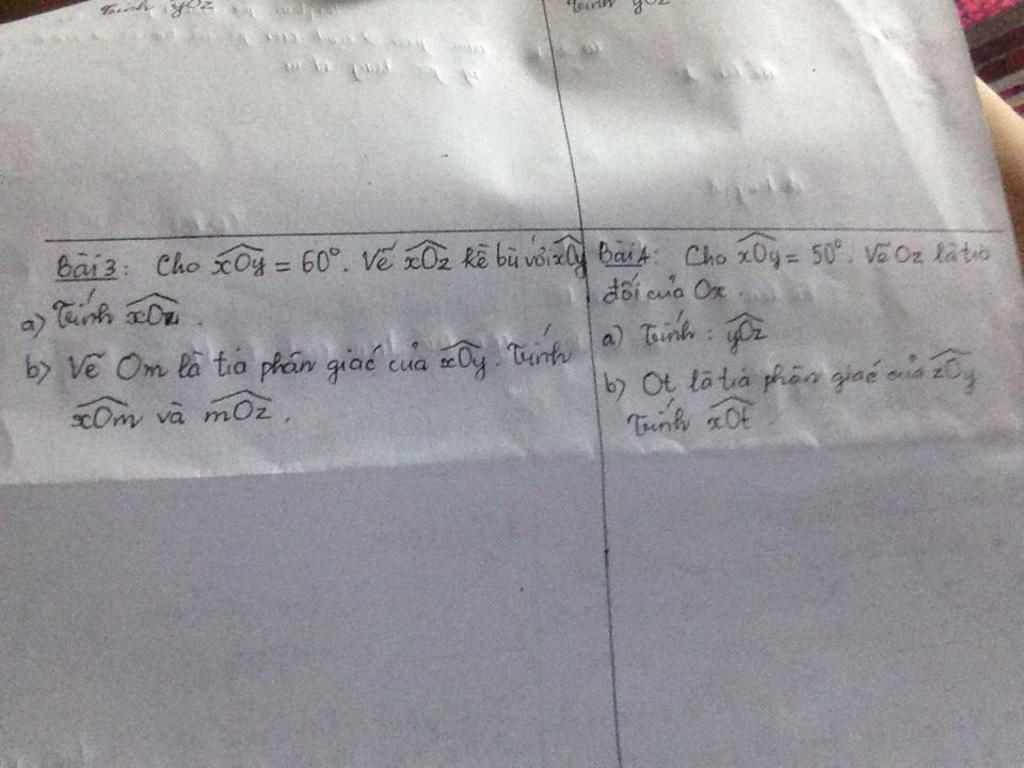 Tính yOz
Tính yOz
Bài 3: Cho xOy = 60°. Vẽ xOz kề bù với xOy
a) Tính xOz.
b) Vẽ Om là tia phân giác của xOy. Tính
xOm và mOz.
Bài 4: Cho xOy = 50°. Vẽ Oz là tia
đối của Ox.
a) Tính: yOz
b) Ot là tia phân giác của zOy
Tính xOt